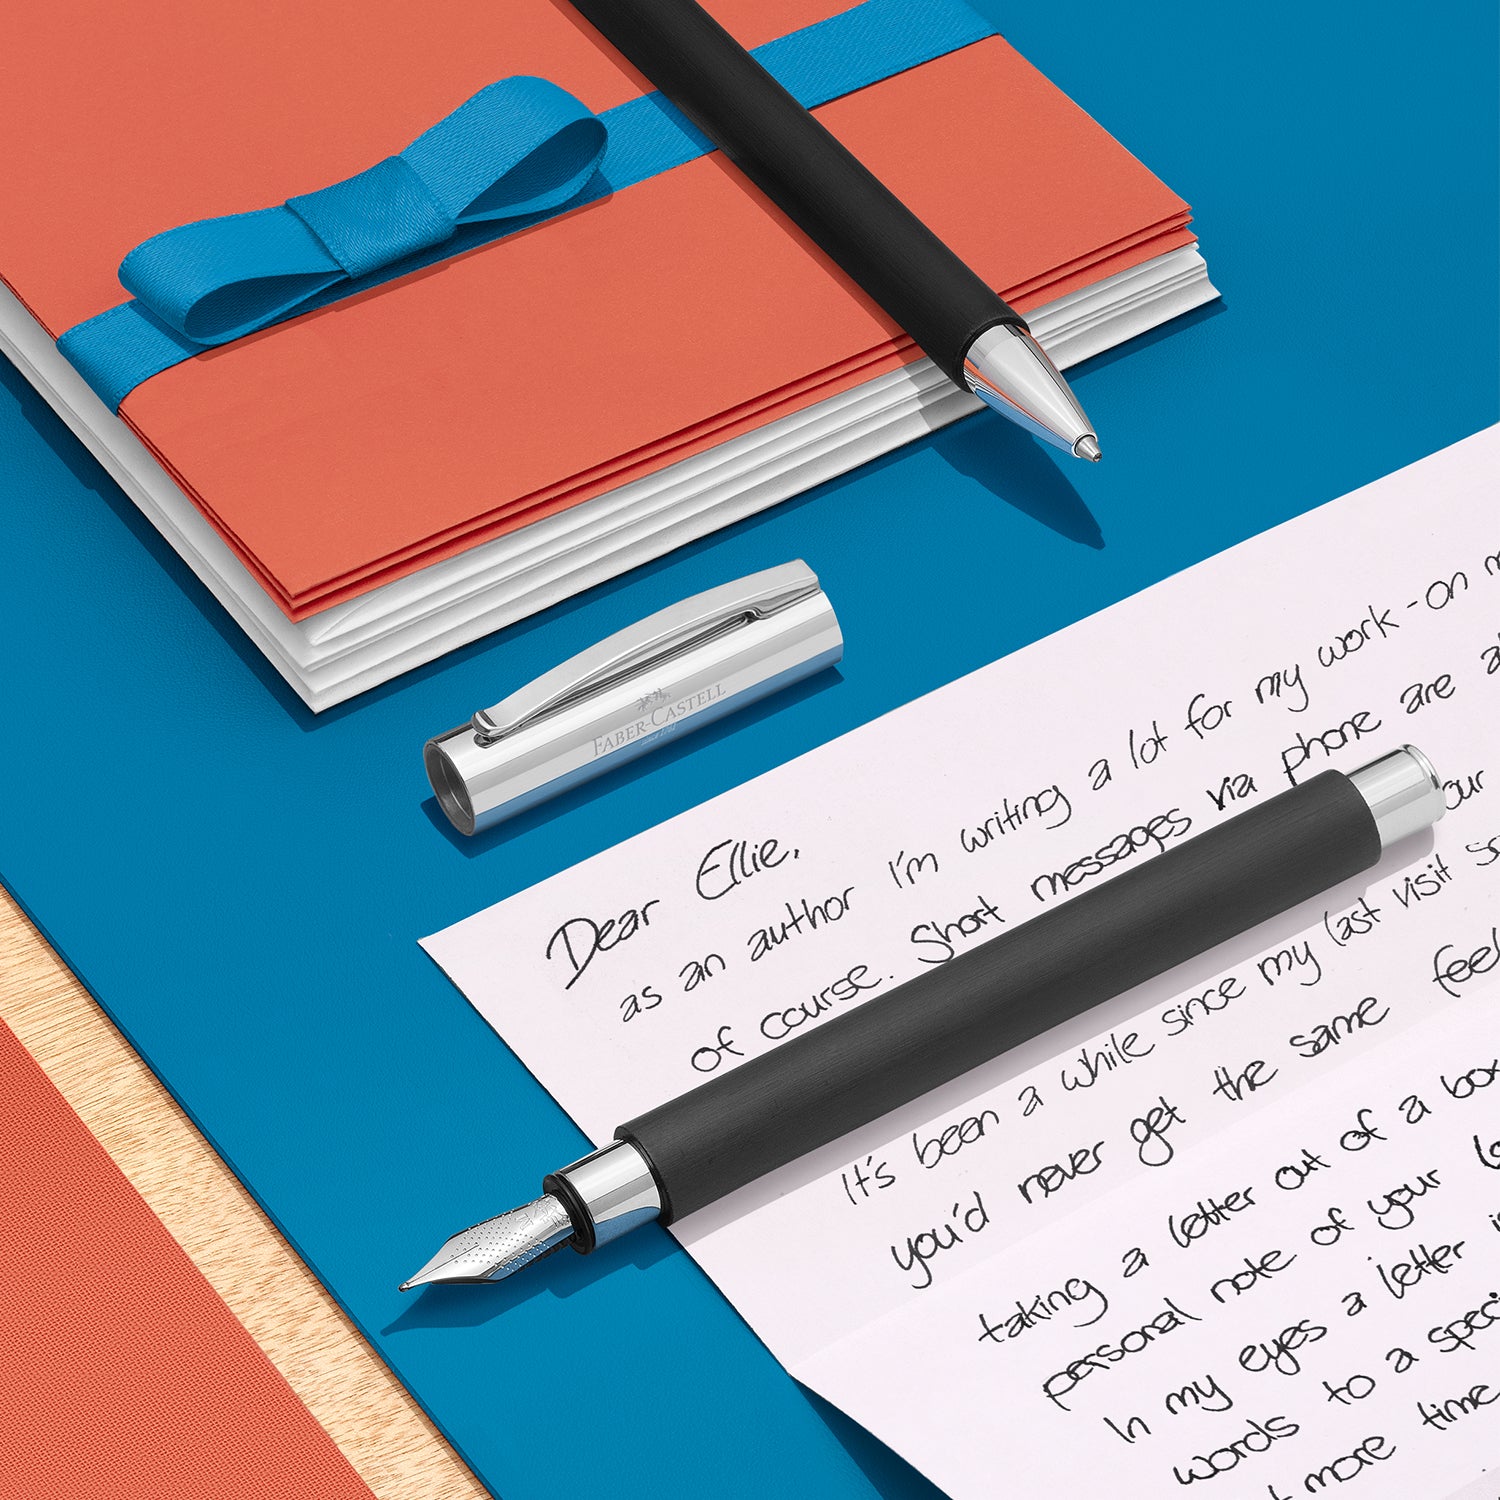 FABER-CASTELL
Dear Ellie,
as an author I'm writing a lot for my work - on
of course. Short messages via phone are
our
It's been a while since my last visit
you'd never get the same
taking a letter out of a box
personal note of your
In my eyes a letter
words to a
more time